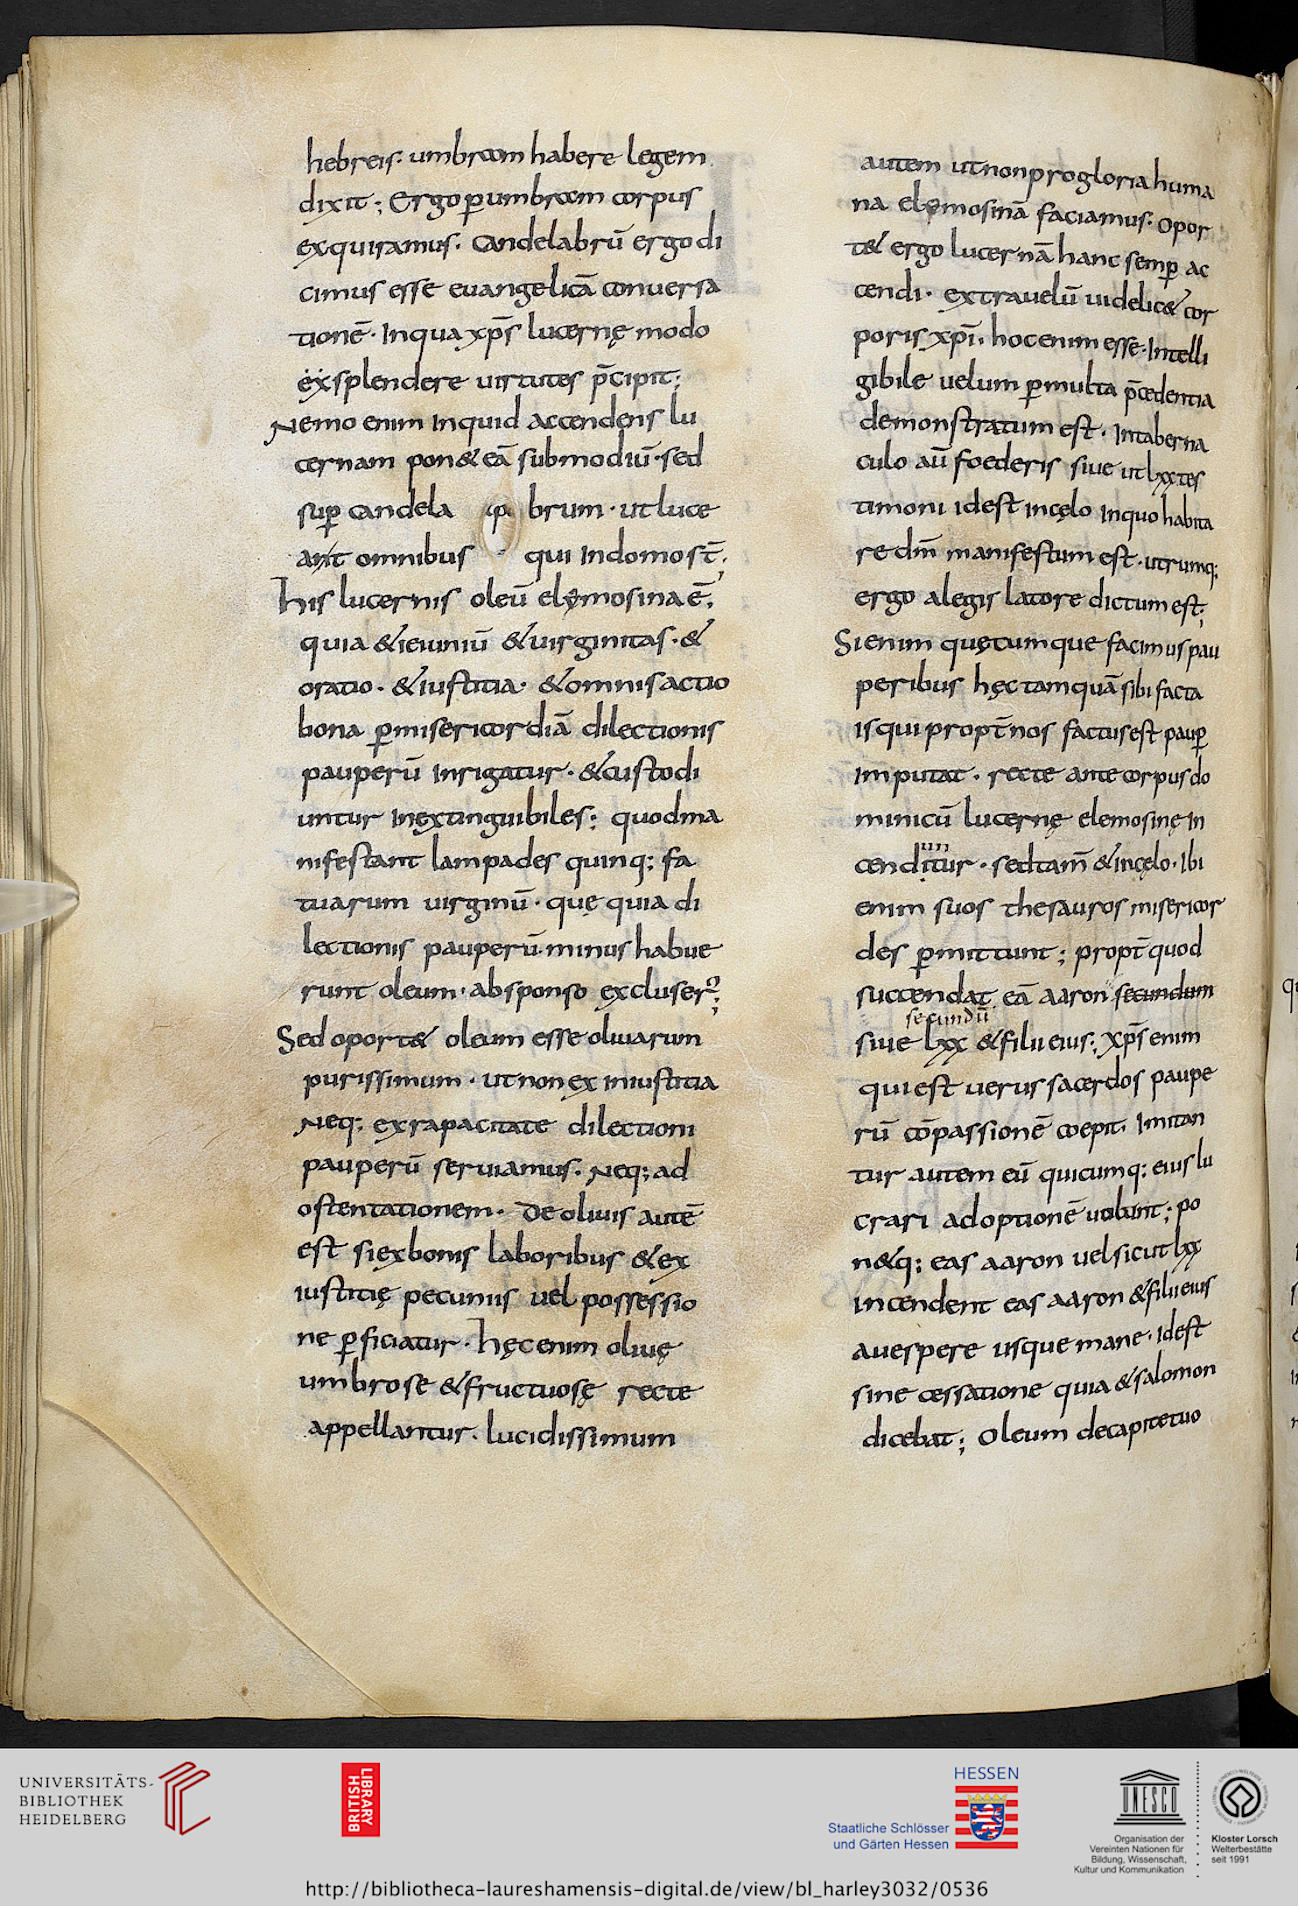 hebreis: umbram habere legem
dixit; Ergo p̄ umbram corpus
exquiramus. Candelabrū ergo di
cimus esse euangelicā conuersa
tionē. In qua xp̄s lucernę modo
exsplendere uirtutes p̄cipit;
Nemo enim inquid accendens lu
cernam pon& eā sub modiū. sed
sup̄ candela brum. ut luce
ant omnibus qui in domo s̄t;
His lucernis oleū elymosina ē,
quia & ieiuniū & uirginitas. &
oratio. & iustitia. & omnis actio
bona p̄ misericordiā dilectionis
pauperū inrigatur. & custodi
untur inextinguibiles; quod ma
nifestant lampades quinq; fa
tuarum uirginū. quę quia di
lectionis pauperū minus habue
runt oleum. ab sponso excluser̄;
Sed oport& oleum esse oliuarum
purissimum. ut non ex iniustitia
Neq; ex rapacitate dilectioni
pauperū seruiamus. Neq; ad
ostentationem. De oliuis autē
est si ex bonis laboribus & ex
iustitię pecuniis uel possessio
ne p̄ficiatur. hęc enim oliuę
umbrose & fructuosę recte
appellantur. lucidissimum
autem ut non pro gloria huma
na elymosinā faciamus. Opor
t& ergo lucernā hanc semp̄ ac
cendi. extra uelū uidelic& cor
poris xp̄i. hoc enim esse. Intelli
gibile uelum p̄ multa p̄cedentia
demonstratum est. In taberna
culo aū foederis siue ut lxx tes
timoni id est in cęlo in quo habita
re dm̄ manifestum est. utrumq;
ergo a legis latore dictum est;
Si enim quęcumque facimus pau
peribus hęc tamquā sibi facta
is qui propt̄ nos factus est paup̄
Imputat. recte ante corpus do
minicū lucernę elemosinę in
cenditur. sed tam̄ & in cęlo. Ibi
enim suos thesauros misericor
des p̄mittunt; propt̄ quod
succendat eā aaron secundum
secundū
siue lxx & filii eius; xp̄s enim
qui est uerus sacerdos paupe
rū cōpassionē coepit. Imitan
tur autem eū quicumq; eius lu
crari adoptionē uolunt; po
n&q; eas aaron uel sicut lxx
incendent eas aaron & filii eius
a uespere usque mane. Id est
sine cessatione quia & salomon
dicebat; Oleum de capite tuo
UNIVERSITÄTS-
BIBLIOTHEK
HEIDELBERG
BRITISH
LIBRARY
HESSEN
Staatliche Schlösser
und Gärten Hessen
UNESCO
Organisation der
Vereinten Nationen für
Bildung, Wissenschaft,
Kultur und Kommunikation
Kloster Lorsch
Welterbestätte
seit 1991
http://bibliotheca-laureshamensis-digital.de/view/bl_harley3032/0536